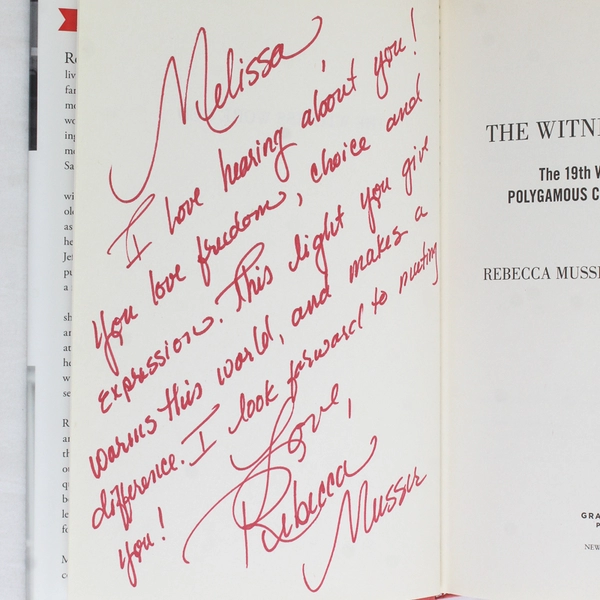 Melissa,
I love hearing about you!
You love freedom, choice and
expression. This light you give
warms this world, and makes a
difference. I look forward to meeting
you!
Love,
Rebecca
Musser
THE WITN
The 19th W
POLYGAMOUS C
REBECCA MUSS
GRA
P
NEW